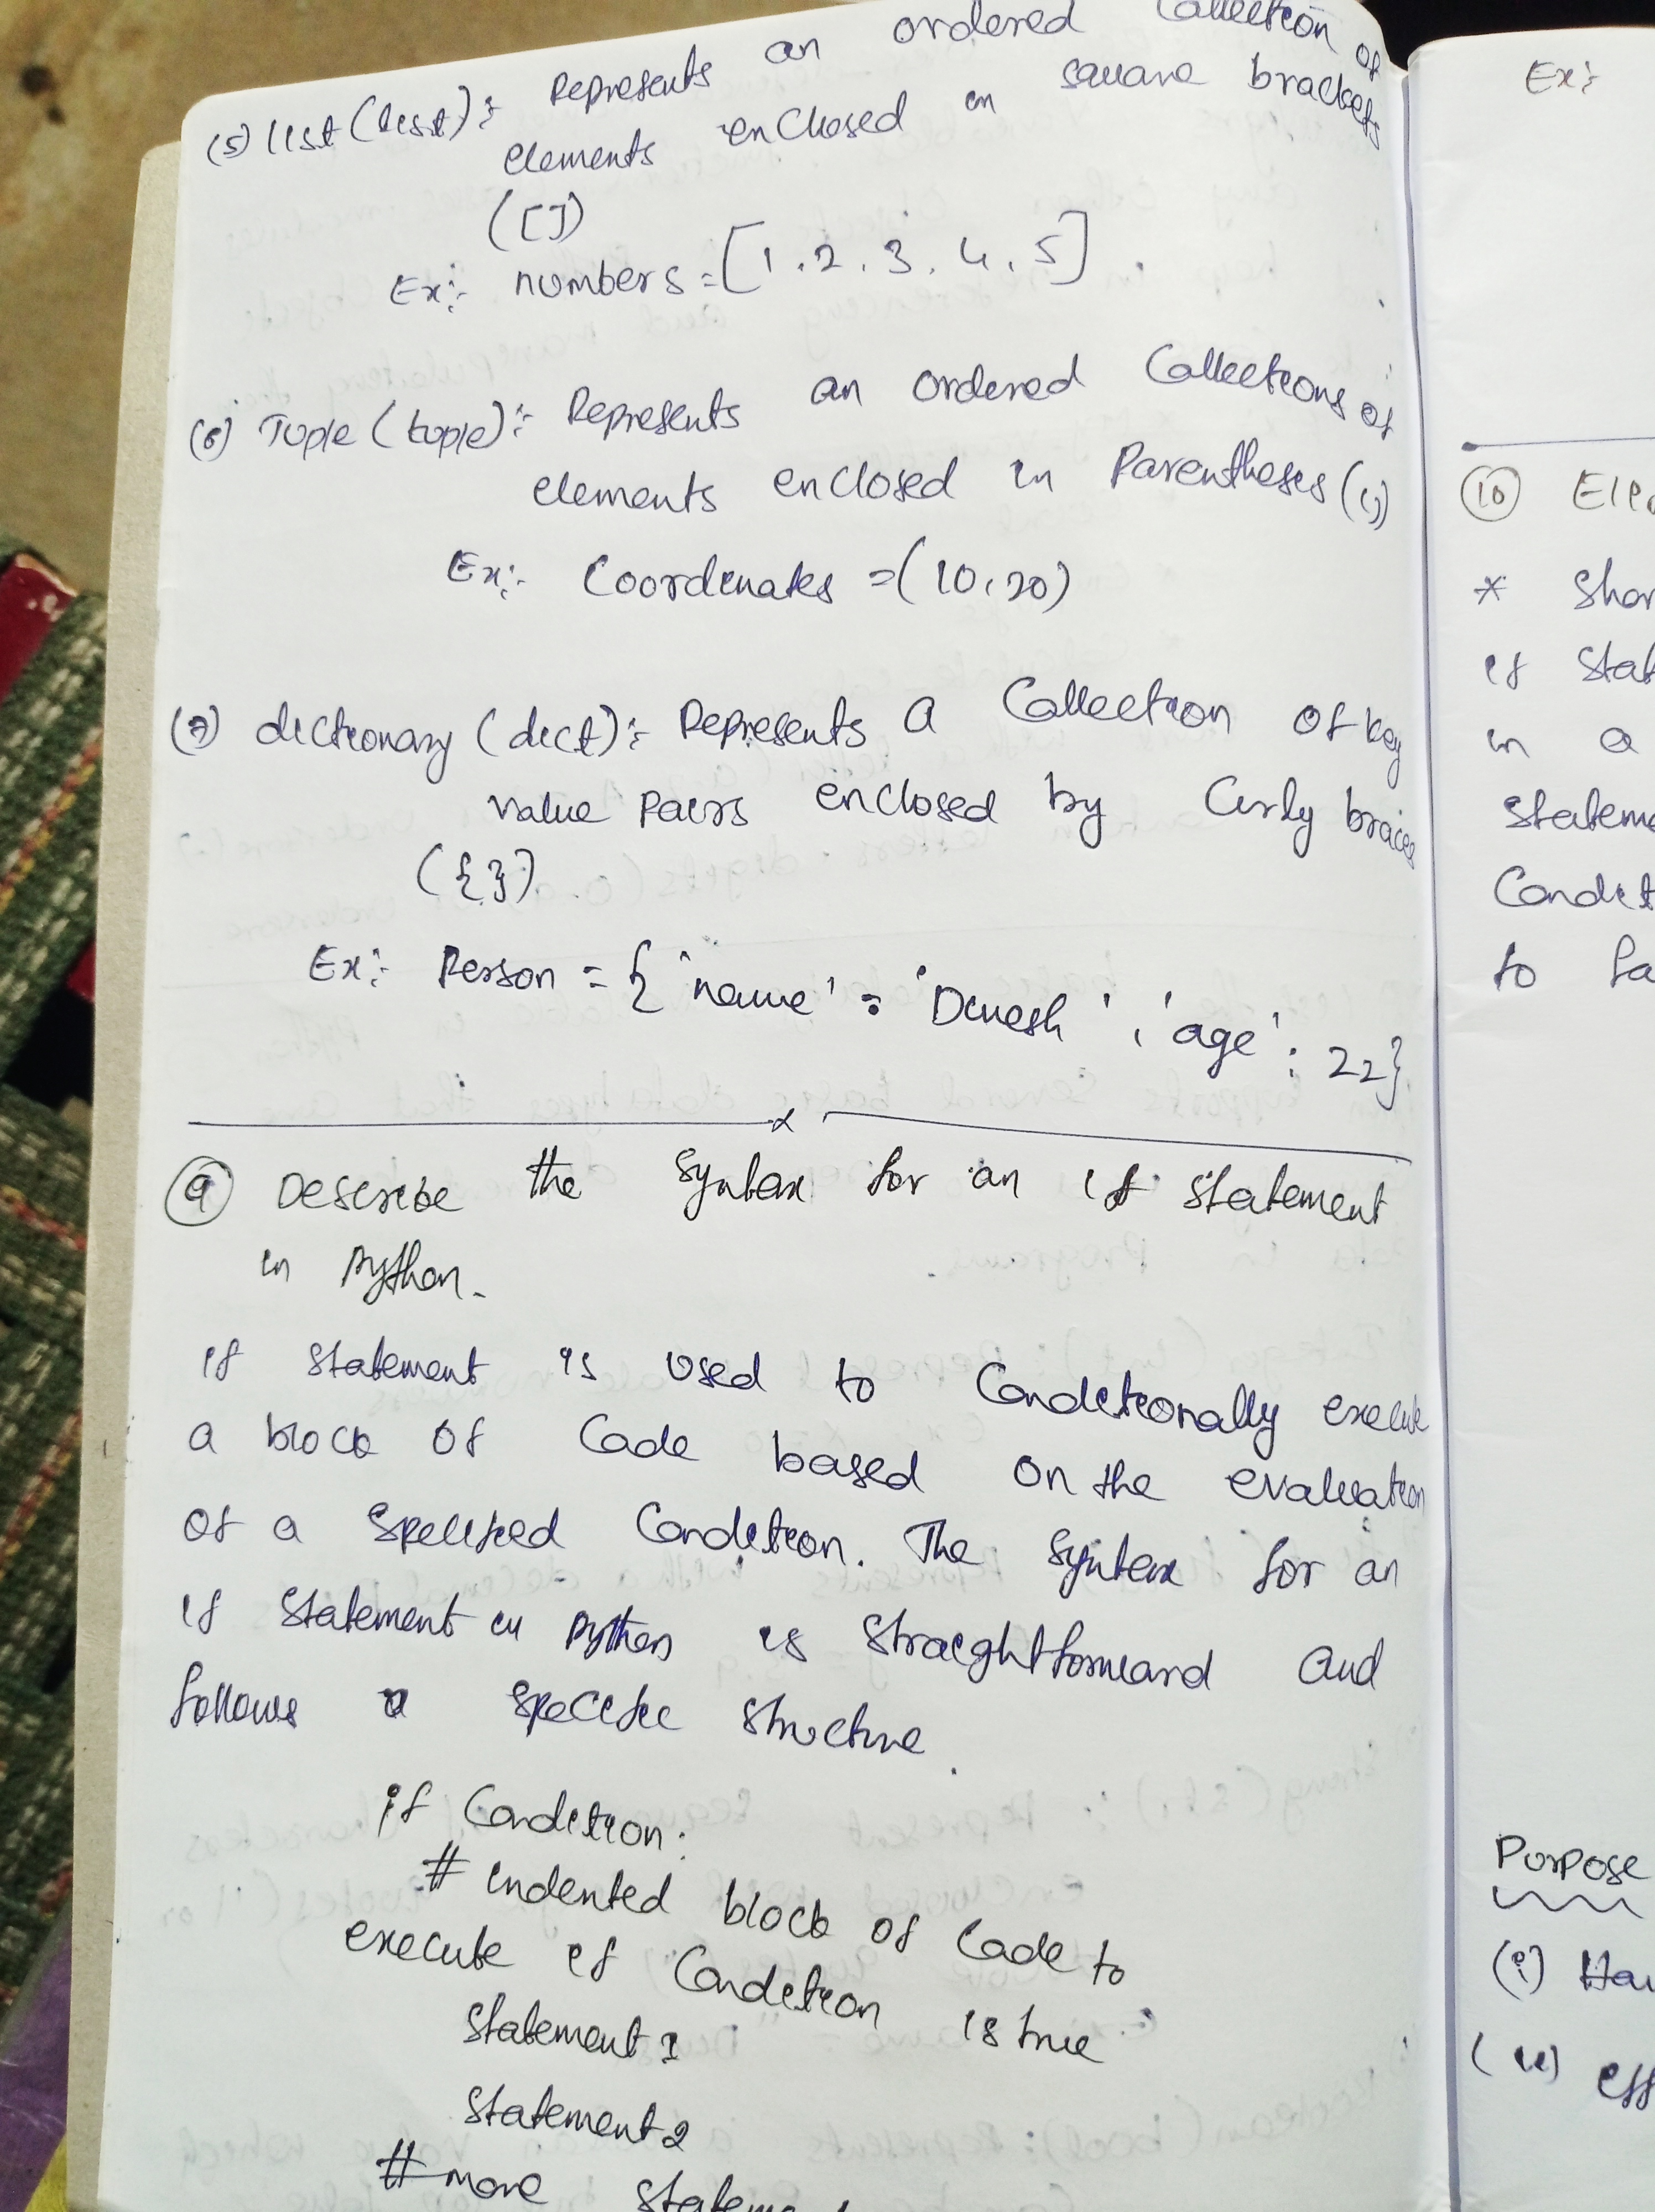 (5) list (list) :- Represents an ordered Collection of
elements enclosed in square brackets
([])
Ex:- numbers = [1, 2, 3, 4, 5].
(6) Tuple (tuple) :- Represents an ordered Collections of
elements enclosed in Parentheses ()
Ex:- Coordinates = (10, 20)
(7) dictionary (dict) :- Represents a Collection of key
value pairs enclosed by Curly braces
({})
Ex:- Person = { 'name' : 'Dinesh', 'age' : 22}
(9) Describe the Syntax for an if statement
in Python.
if statement is used to Conditionally execute
a block of Code based on the evaluation
of a specified Condition. The Syntax for an
if statement in python is straightforward and
follows a specific structure.
if Condition:
# indented block of Code to
execute if Condition is true
statement 1
statement 2
# more
Ex:
(10)
*
if
in a
to
Purpose
(i)
(ii)